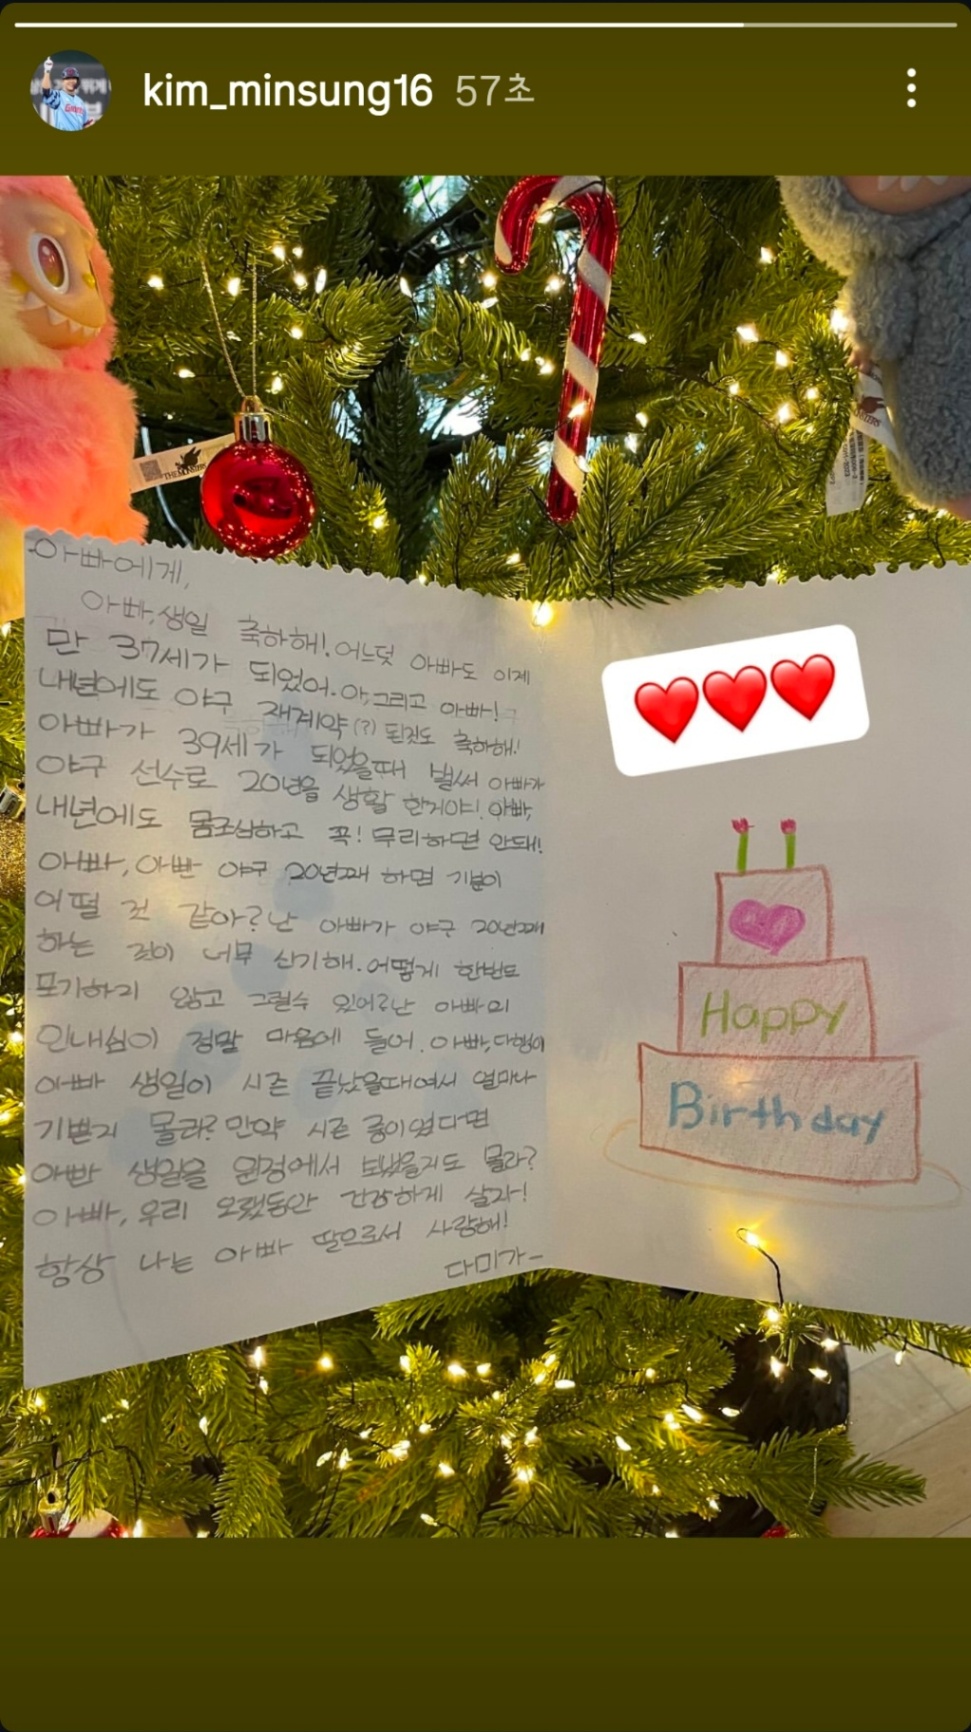 kim_minsung16 57초
THEMONSTERS
아빠에게,
아빠, 생일 축하해! 어느덧 아빠도 이제
만 37세가 되었어. 아, 그리고 아빠!
내년에도 야구 재계약(?) 된것도 축하해!
아빠가 39세가 되었을때 벌써 아빠가
야구 선수로 20년을 생활 한거야! 아빠,
내년에도 몸조심하고 꼭! 무리하면 안돼!
아빠, 아빤 야구 20년째 하면 기분이
어떨 것 같아? 난 아빠가 야구 20년째
하는 것이 너무 신기해. 어떻게 한번도
포기하지 않고 그럴수 있어? 난 아빠의
인내심이 정말 마음에 들어. 아빠, 다행이
아빠 생일이 시즌 끝났을때여서 얼마나
기쁜지 몰라? 만약 시즌 중이였다면
아빤 생일을 원정에서 보냈을지도 몰라?
아빠, 우리 오랫동안 건강하게 살자!
항상 나는 아빠 딸으로서 사랑해!
다미가-
Happy
Birthday